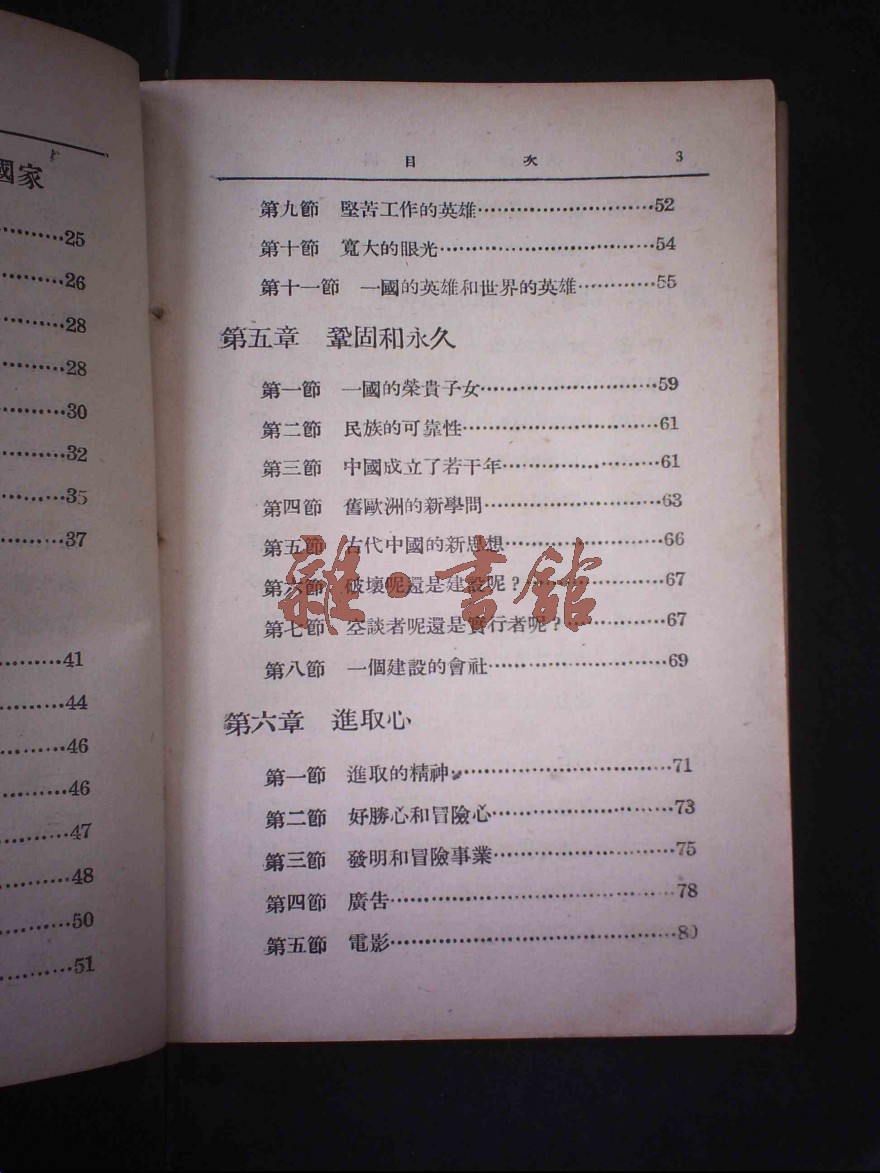 國家
25
26
28
28
30
32
35
37
41
44
46
46
47
48
50
51
目 次 3
第九節 堅苦工作的英雄…………52
第十節 寬大的眼光…………54
第十一節 一國的英雄和世界的英雄…………55
第五章 鞏固和永久
第一節 一國的榮貴子女…………59
第二節 民族的可靠性…………61
第三節 中國成立了若干年…………61
第四節 舊歐洲的新學問…………63
第五節 古代中國的新思想…………66
第六節 破壞呢還是建設呢？…………67
第七節 空談者呢還是實行者呢？…………67
第八節 一個建設的會社…………69
第六章 進取心
第一節 進取的精神…………71
第二節 好勝心和冒險心…………73
第三節 發明和冒險事業…………75
第四節 廣告…………78
第五節 電影…………80
雜·書館